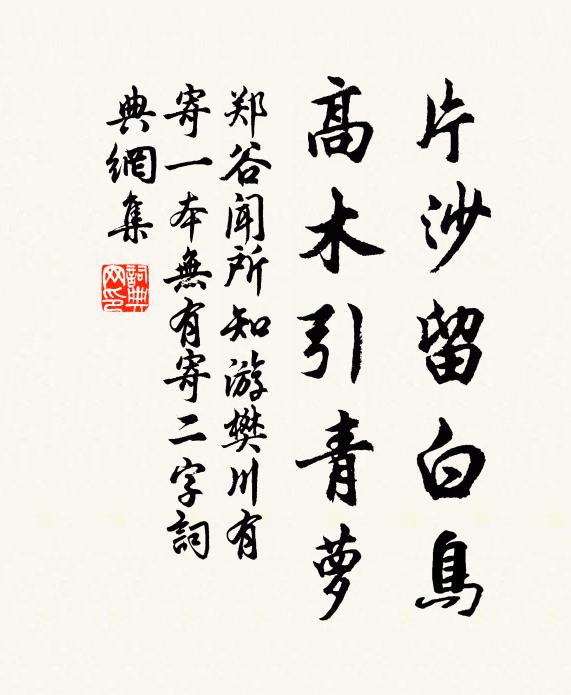 片沙留白鳥
高木引青萝
郑谷闻所知游樊川有
寄一本無有寄二字詞
典網集
詞典网印